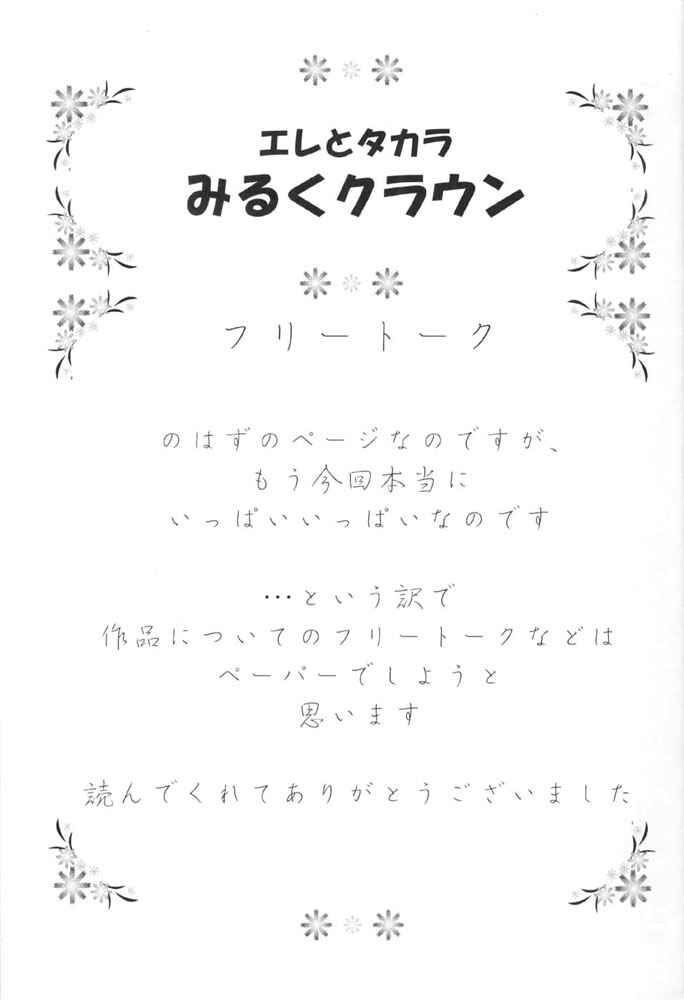 エレとタカラ
みるくクラウン
フリートーク
のはずのページなのですが、
もう今回本当に
いっぱいいっぱいなのです
…という訳で
作品についてのフリートークなどは
ペーパーでしようと
思います
読んでくれてありがとうございました